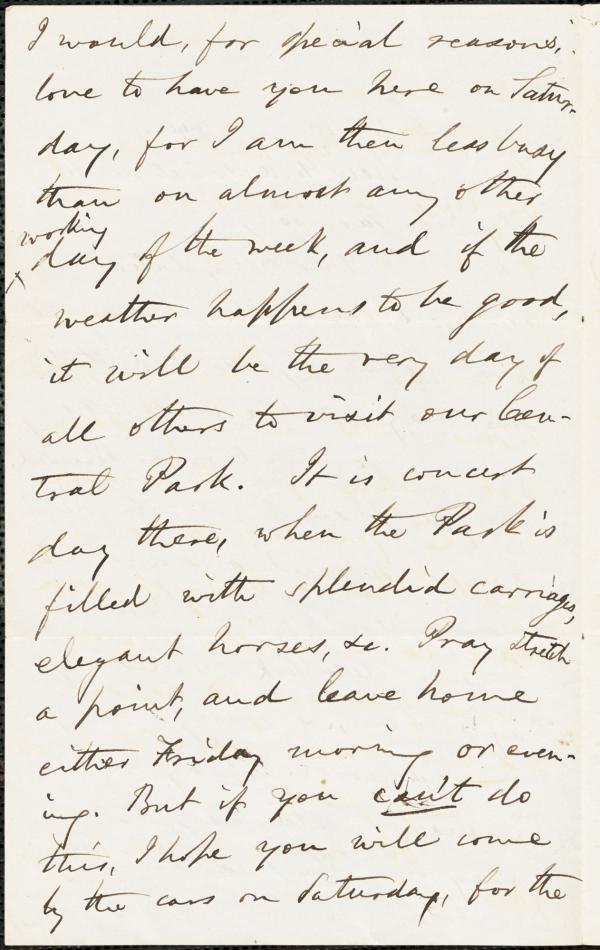 I would, for special reasons,
love to have you here on Satur-
day, for I am then less busy
than on almost any other
working
day of the week, and if the
weather happens to be good,
it will be the very day of
all others to visit our Cen-
tral Park. It is concert
day there, when the Park is
filled with splendid carriages,
elegant horses, &c. Pray stretch
a point, and leave home
either Friday morning or even-
ing. But if you can't do
this, I hope you will come
by the cars on Saturday, for the